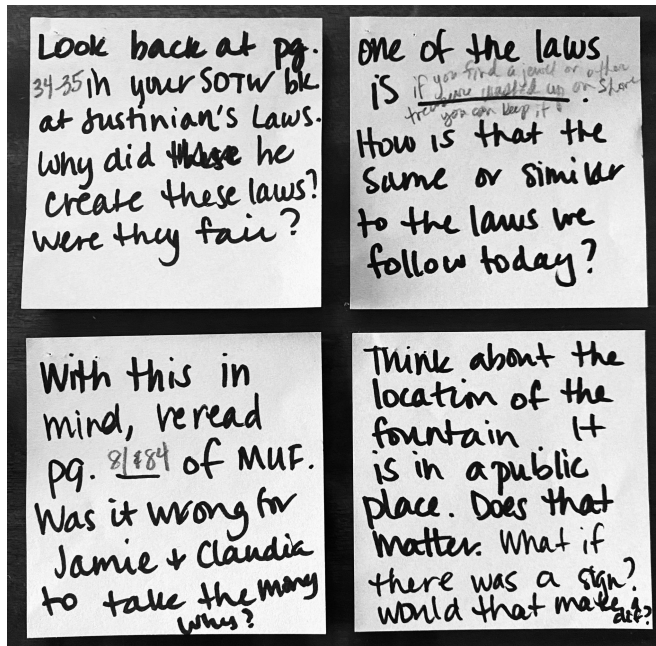 Look back at pg.
34-35 in your SOTW bk
at Justinian's Laws.
Why did these he
create these laws?
Were they fair?
one of the laws
is if you find a jewel or other
treasure washed up on shore
you can keep it.
How is that the
same or similar
to the laws we
follow today?
With this in
mind, reread
pg. 81 & 84 of MUF.
Was it wrong for
Jamie + Claudia
to take the money
Why?
Think about the
location of the
fountain. It
is in a public
place. Does that
matter. What if
there was a sign?
Would that make a
dif?